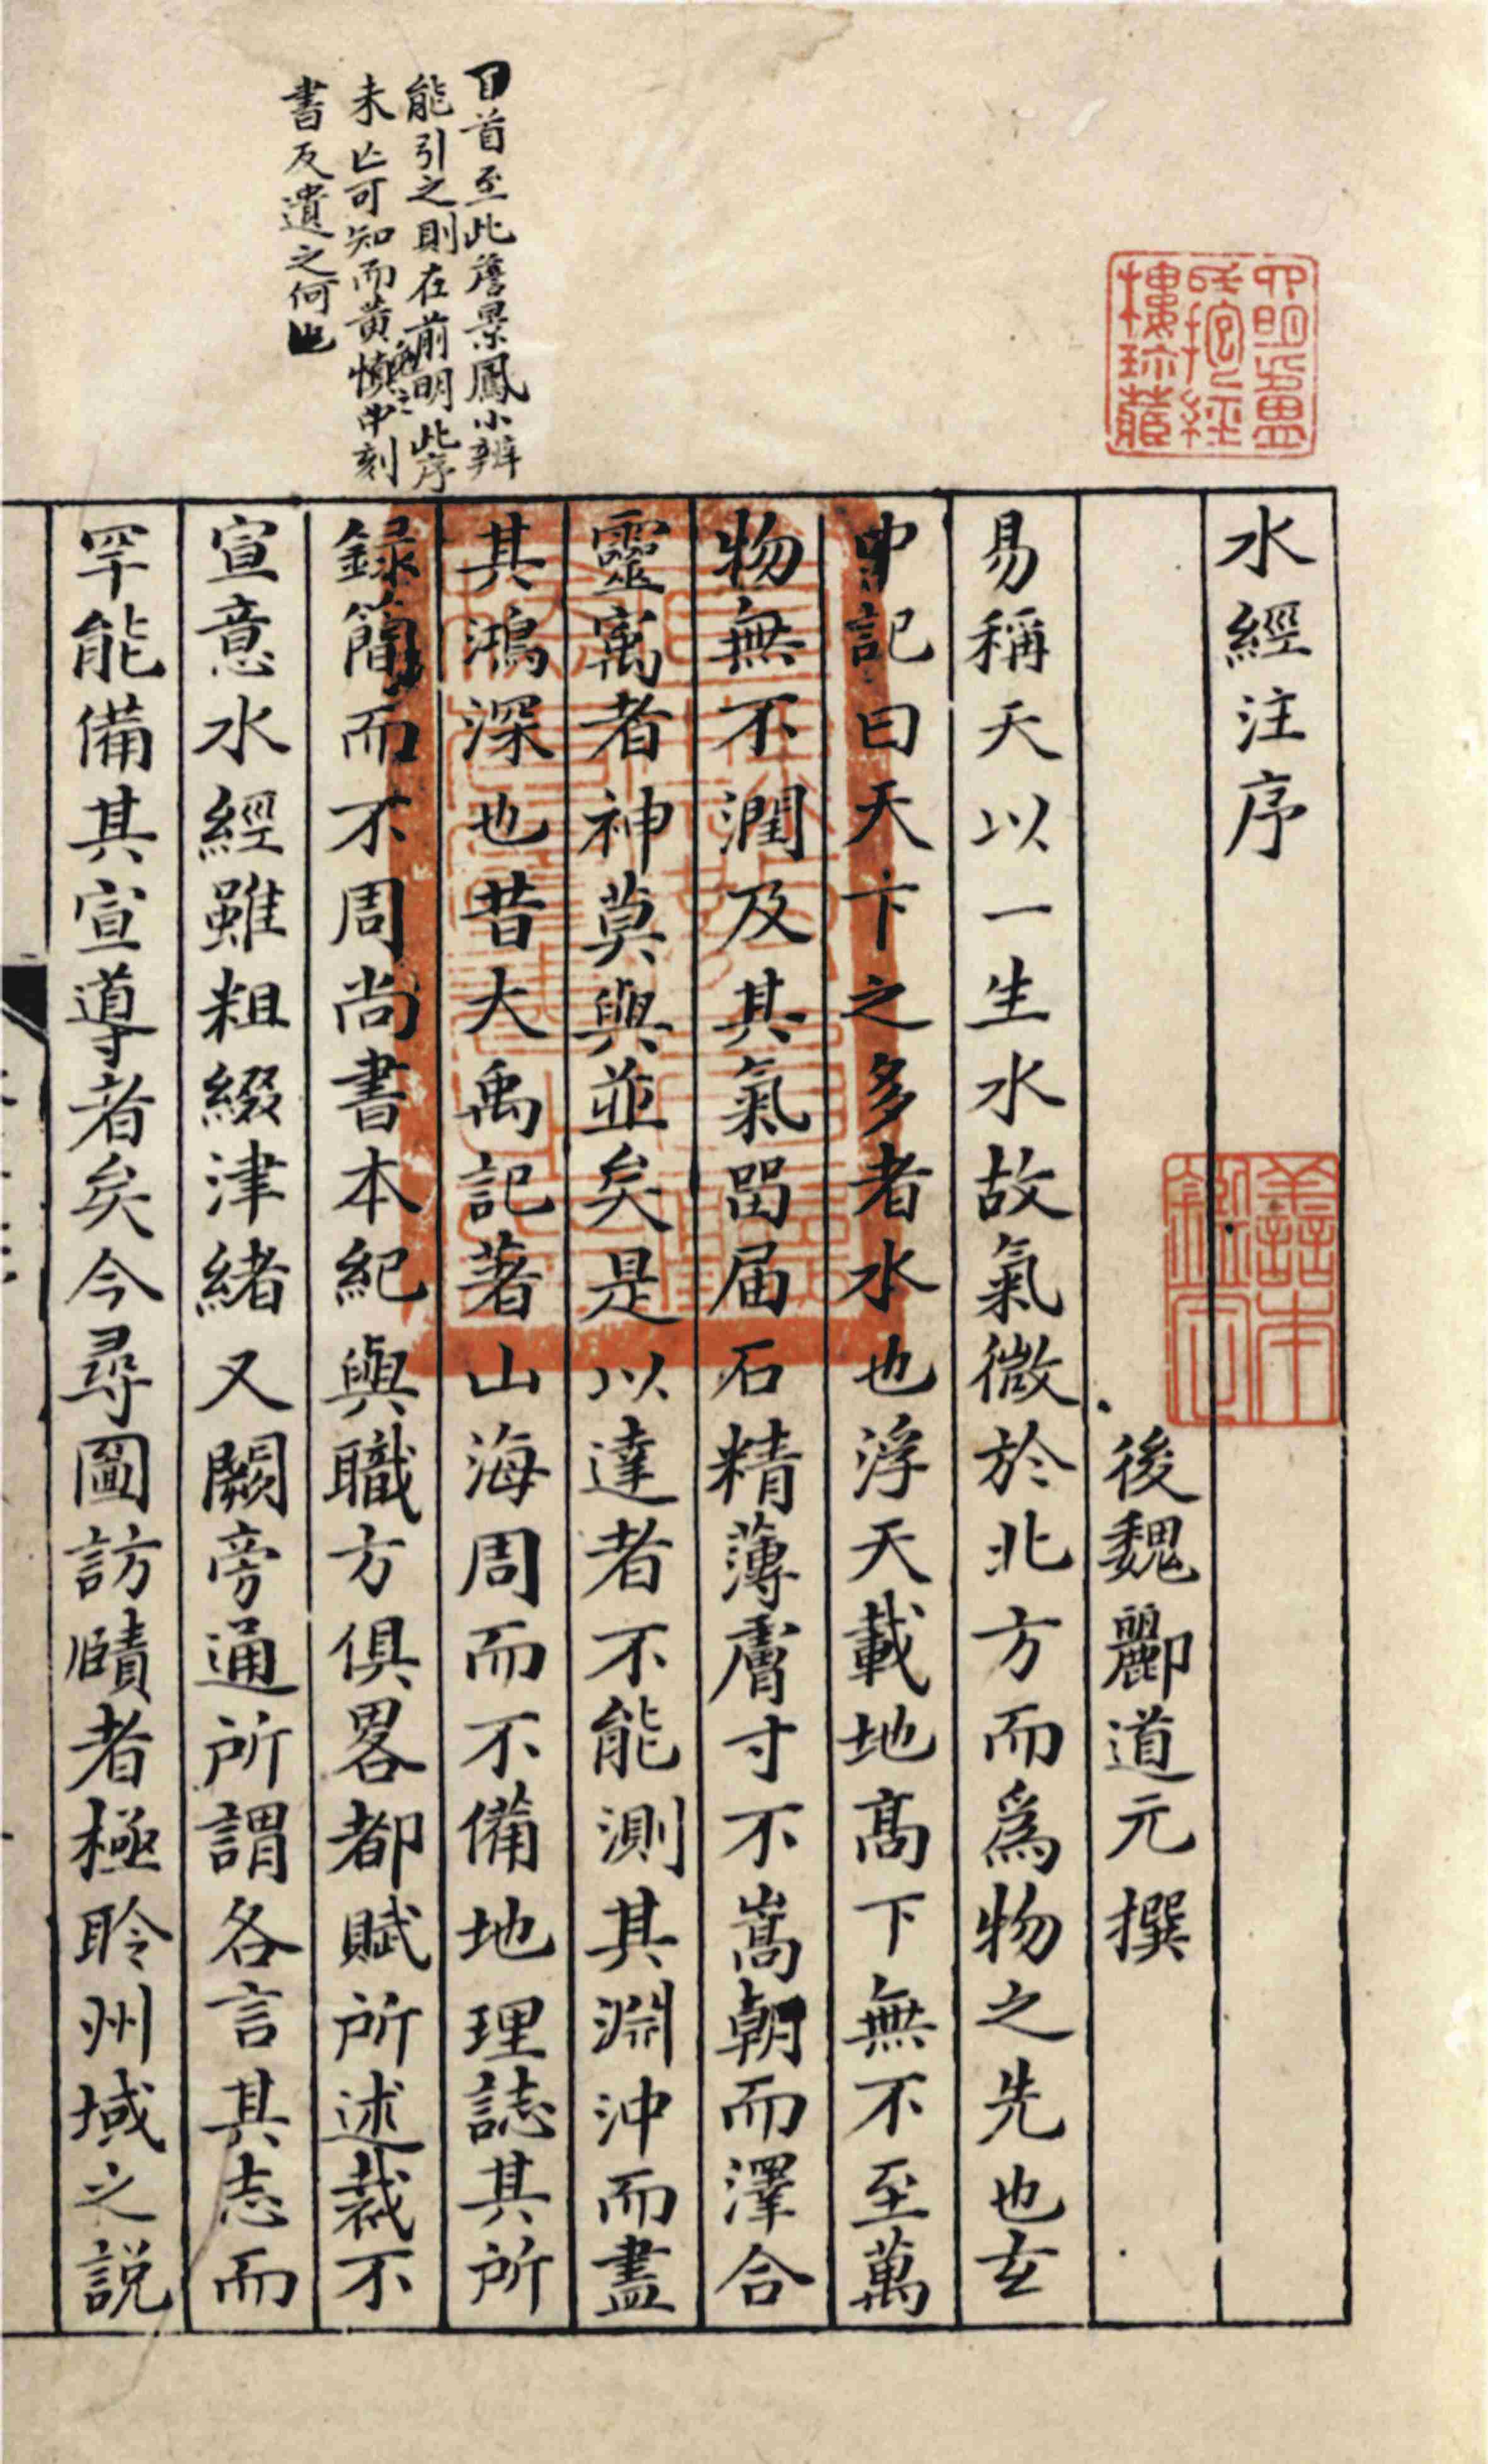 水經注序
後魏酈道元撰
易稱天以一生水故氣微於北方而爲物之先也玄
中記曰天下之多者水也浮天載地髙下無不至萬
物無不潤及其氣畱届石精薄膚寸不崇朝而澤合
靈寓者神莫與並矣是以達者不能測其淵沖而盡
其鴻深也昔大禹記著山海周而不備地理誌其所
録簡而不周尚書本紀與職方俱畧都賦所述裁不
宣意水經雖粗綴津緒又闕旁通所謂各言其志而
罕能備其宣導者矣今尋圖訪賾者極聆州域之説
首至此詹景鳳小辨
能引之則在前明此序
未亡可知而黄慎中刻
書反遺之何也
善本